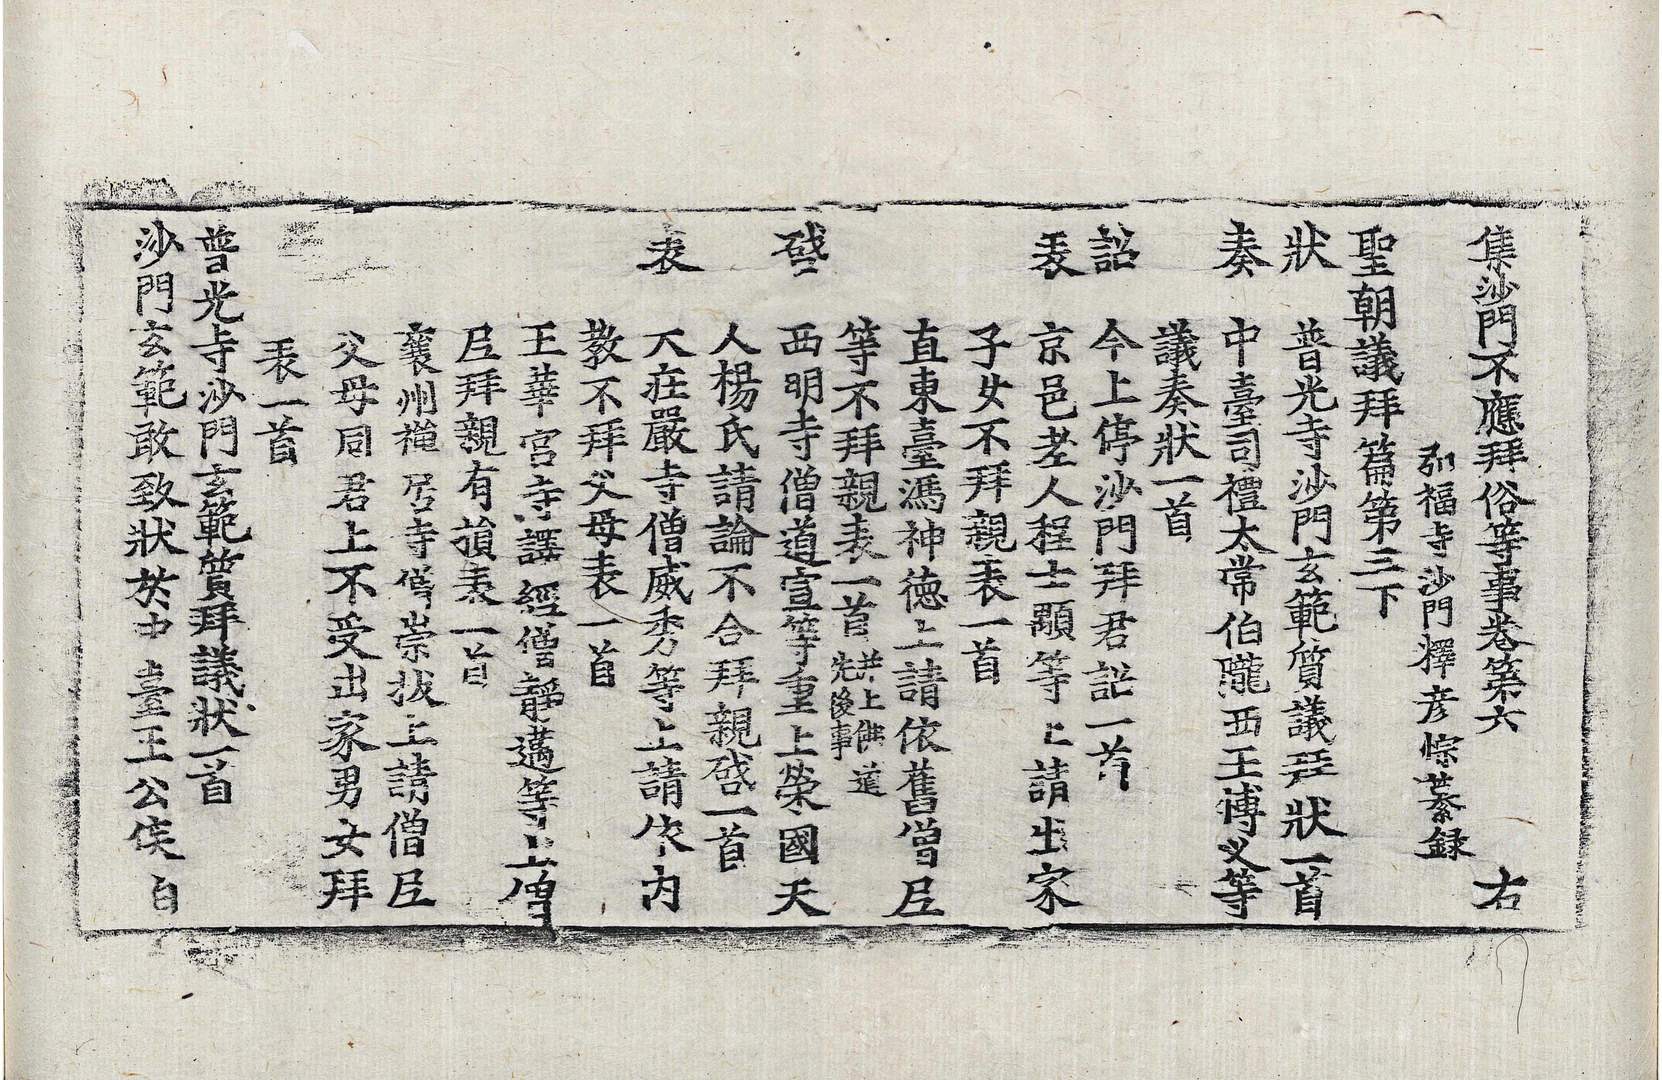 集沙門不應拜俗等事卷第六 右
弘福寺沙門釋彦悰纂録
聖朝議拜篇第三下
狀 普光寺沙門玄範質議拜狀一首
奏 中臺司禮太常伯隴西王博乂等
議奏狀一首
詔 今上停沙門拜君詔一首
表 京邑老人程士顒等上請出家
子女不拜親表一首
直東臺馮神德上請依舊僧尼
等不拜親表一首 并上佛道先後事
啓 西明寺僧道宣等重上榮國夫
人楊氏請論不合拜親啓一首
表 大莊嚴寺僧威秀等上請依内
教不拜父母表一首
玉華宮寺譯經僧靜邁等上僧
尼拜親有損表一首
襄州禪居寺僧崇拔上請僧尼
父母同君上不受出家男女拜
表一首
普光寺沙門玄範質拜議狀一首
沙門玄範敢致狀於中臺王公侯自